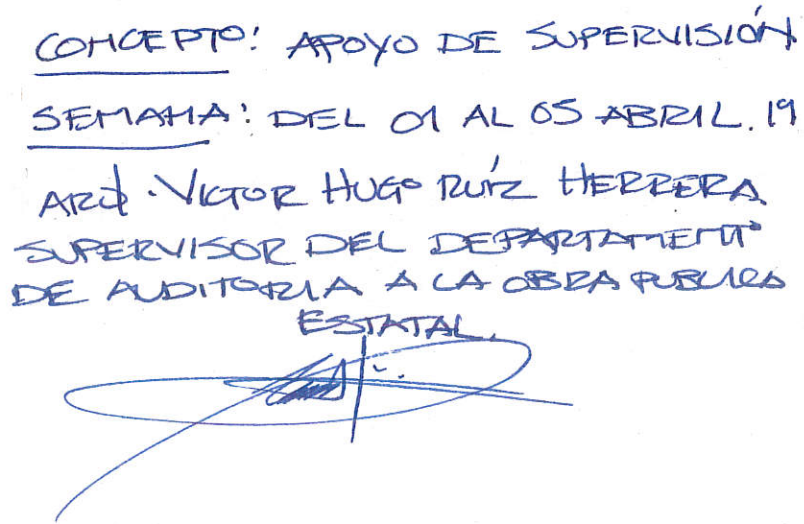 CONCEPTO: APOYO DE SUPERVISIÓN
SEMANA: DEL 01 AL 05 ABRIL. 19
ARQ. VICTOR HUGO RUÍZ HERRERA
SUPERVISOR DEL DEPARTAMENTO
DE AUDITORIA A LA OBRA PUBLICA
ESTATAL.